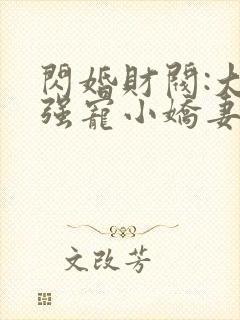 閃婚財閥:大
强寵小嬌妻
文改芳